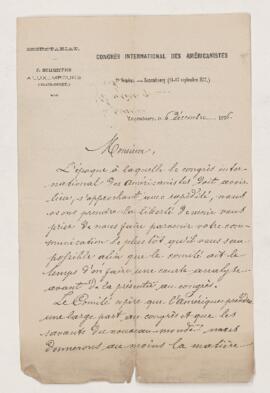 SECRÉTARIAT.
CONGRÈS INTERNATIONAL DES AMÉRICANISTES
A LUXEMBOURG
Luxembourg, le 6 décembre 1876.
Monsieur,
L'époque à laquelle le congrès inter-
national des américanistes doit avoir
lieu, s'approchant avec rapidité, nous
osons prendre la liberté de venir vous
prier de nous faire parvenir votre com-
munication le plus tôt qu'il vous sera
possible afin que le comité ait le
temps d'en faire une courte analyse
avant de la présenter au congrès.
Le Comité espère que l'Amérique prendra
une large part au congrès et que les
savants du nouveau monde nous
donnerons au moins la matière